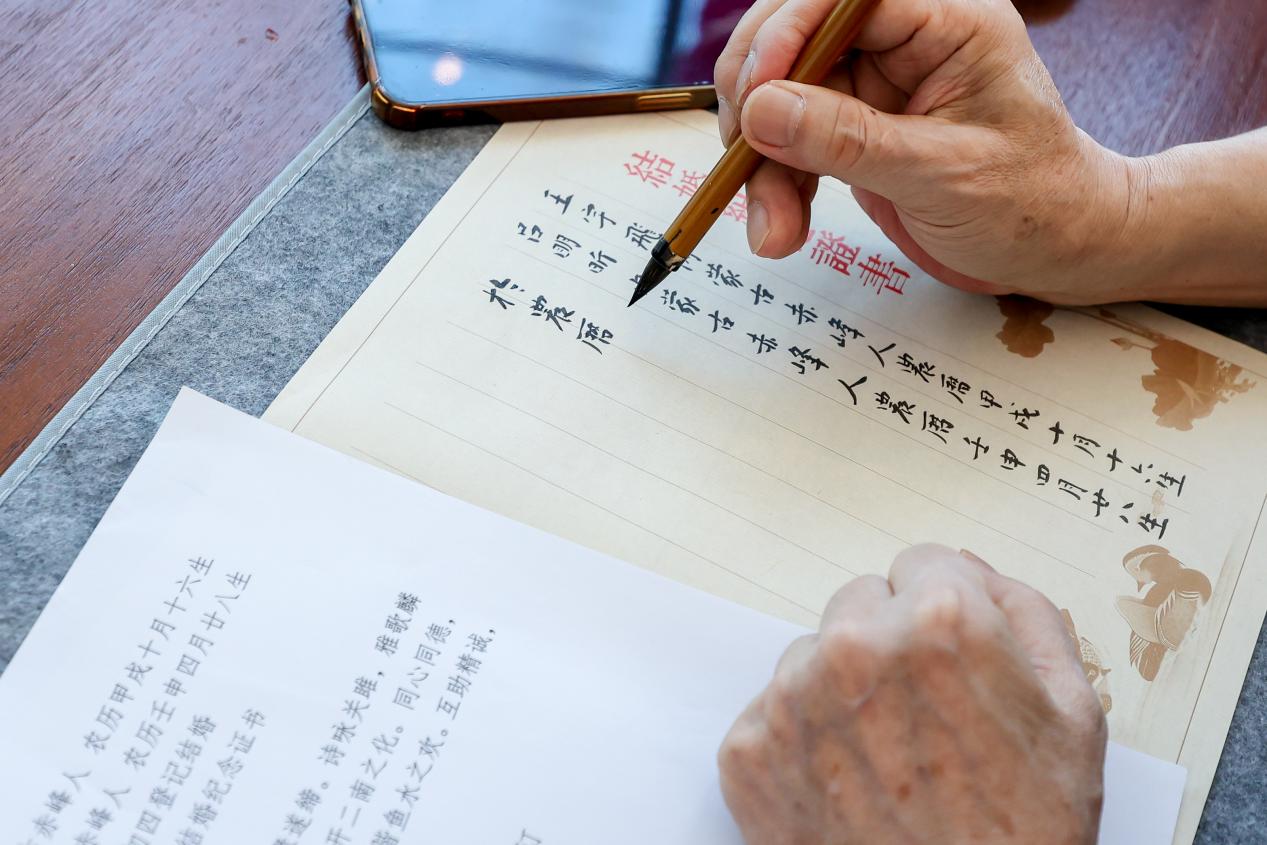 結婚 證書
王宇飛 蒙古赤峰人農曆甲戌十月十六生
呂明昕 蒙古赤峰人農曆壬申四月廿八生
於農曆
赤峰人 农历甲戌十月十六生
赤峰人 农历壬申四月廿八生
初四登记结婚
结婚纪念证书
遂缔。诗咏关雎，雅歌麟
开二南之化。同心同德，
谐鱼水之欢。互助精诚，
订